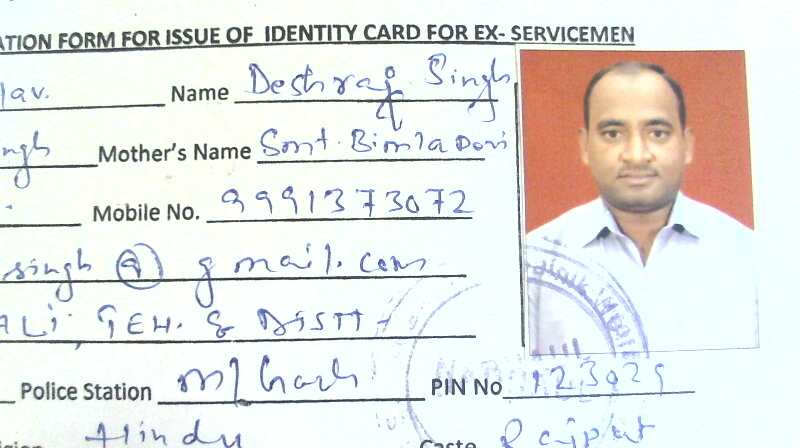 ATION FORM FOR ISSUE OF IDENTITY CARD FOR EX- SERVICEMEN
lav. Name Deshraj Singh
ngh Mother's Name Smt. Bimla Devi
Mobile No. 9991373072
singh @ gmail.com
ALI, TEH. & DISTT-
Police Station M/Garh PIN No 123029
Hindu Caste Rajput